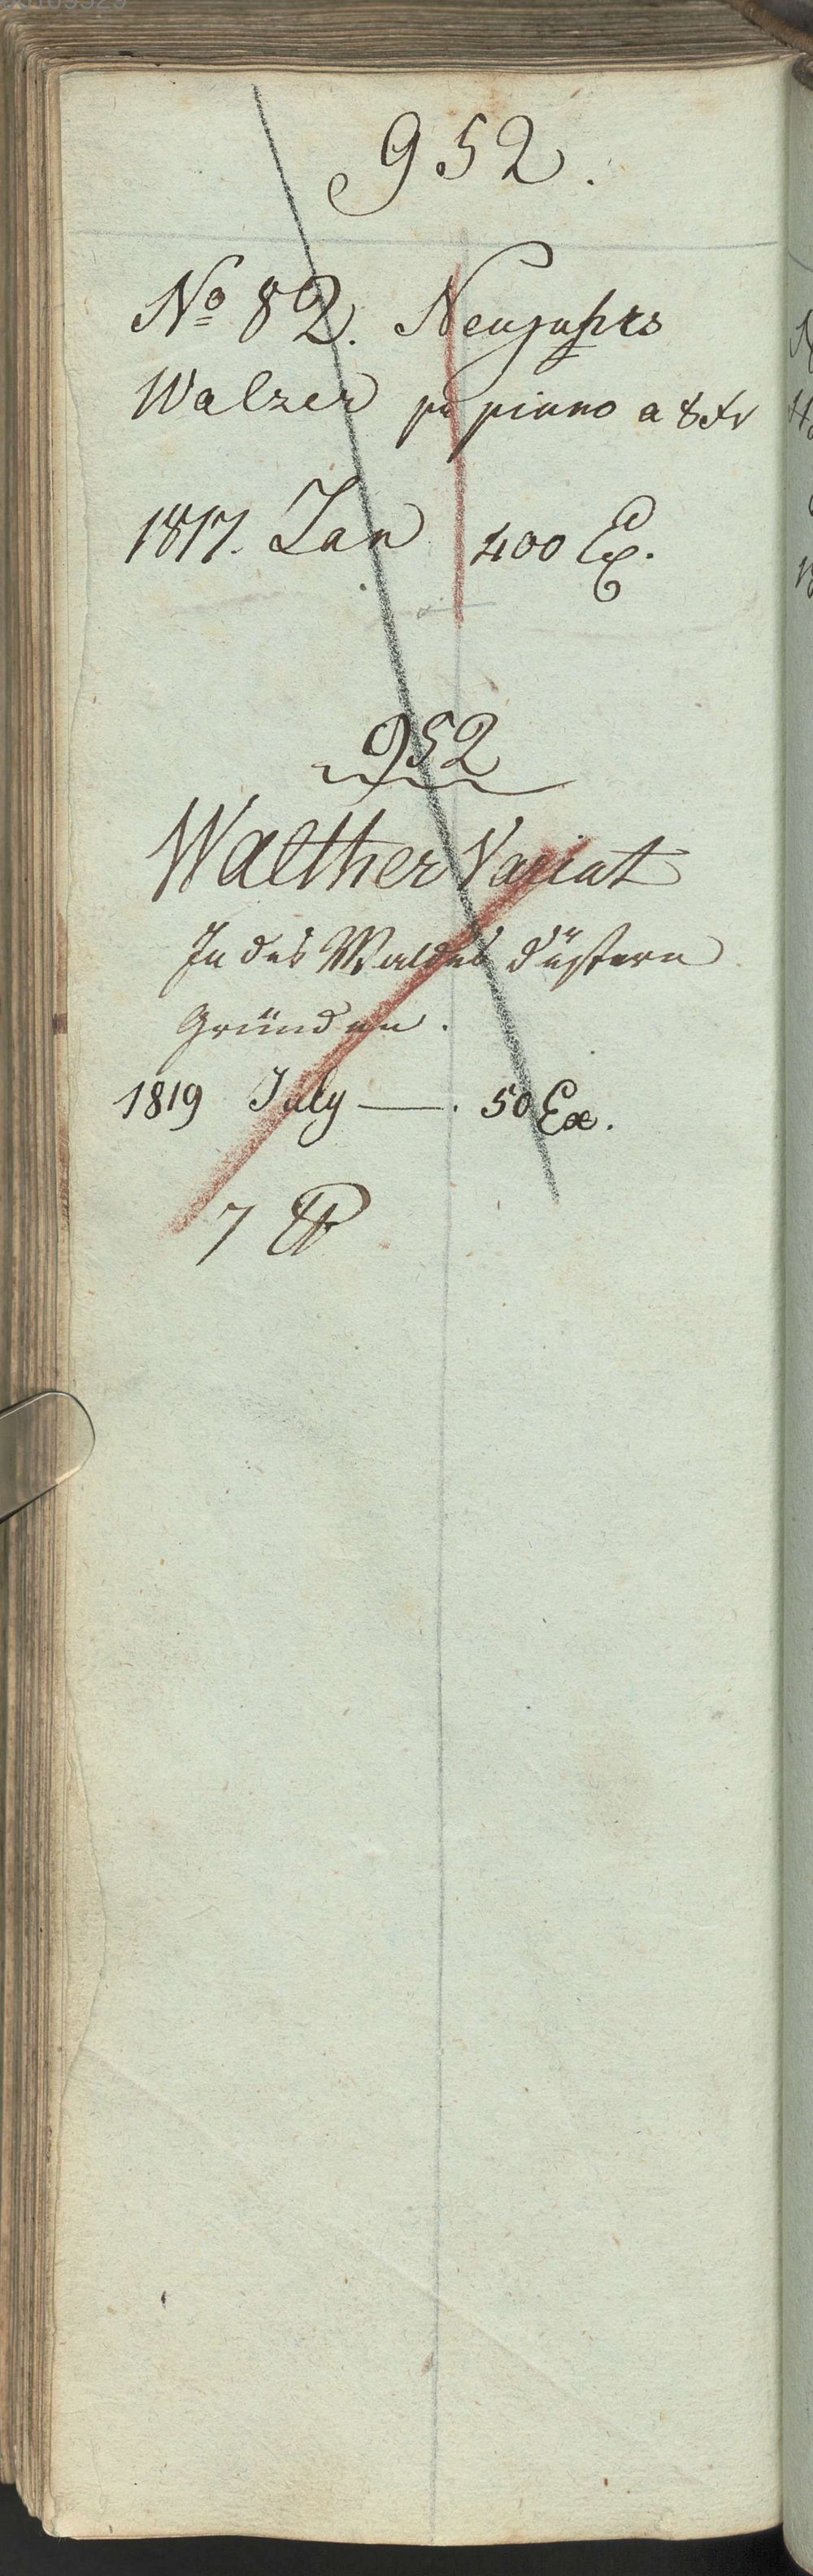 952.
No 82. Neujahrs
Walzer pa piano a 8 xr
1817. Jan 400 Ex.
952
Walther Variat
In des Waldes düstern
Gründen.
1819 July —. 50 Ex.
7